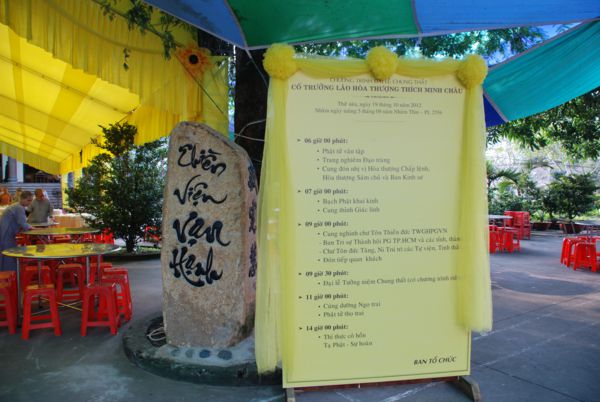 Thiền
Viện
Vạn
Hạnh
CHƯƠNG TRÌNH ĐẠI LỄ CHUNG THẤT
CỐ TRƯỞNG LÃO HÒA THƯỢNG THÍCH MINH CHÂU
Thứ sáu, ngày 19 tháng 10 năm 2012
Nhằm ngày mùng 5 tháng 09 năm Nhâm Thìn - PL 2556
➤ 06 giờ 00 phút:
• Phật tử vân tập
• Trang nghiêm Đạo tràng
• Cung đón nhị vị Hòa thượng Chấp lệnh,
Hòa thượng Sám chủ và Ban Kinh sư
➤ 07 giờ 00 phút:
• Bạch Phật khai kinh
• Cung thỉnh Giác linh
➤ 09 giờ 00 phút:
• Cung nghinh chư Tôn Thiền đức TWGHPGVN
- Ban Trị sự Thành hội PG TP.HCM và các tỉnh, thành
- Chư Tôn đức Tăng, Ni Trú trì các Tự viện, Tịnh thất
• Đón tiếp quan khách
➤ 09 giờ 30 phút:
• Đại lễ Tưởng niệm Chung thất (có chương trình
➤ 11 giờ 00 phút:
• Cúng dường Ngọ trai
• Phật tử thọ trai
➤ 14 giờ 00 phút:
• Thí thực cô hồn
Tạ Phật - Sự hoàn
BAN TỔ CHỨC